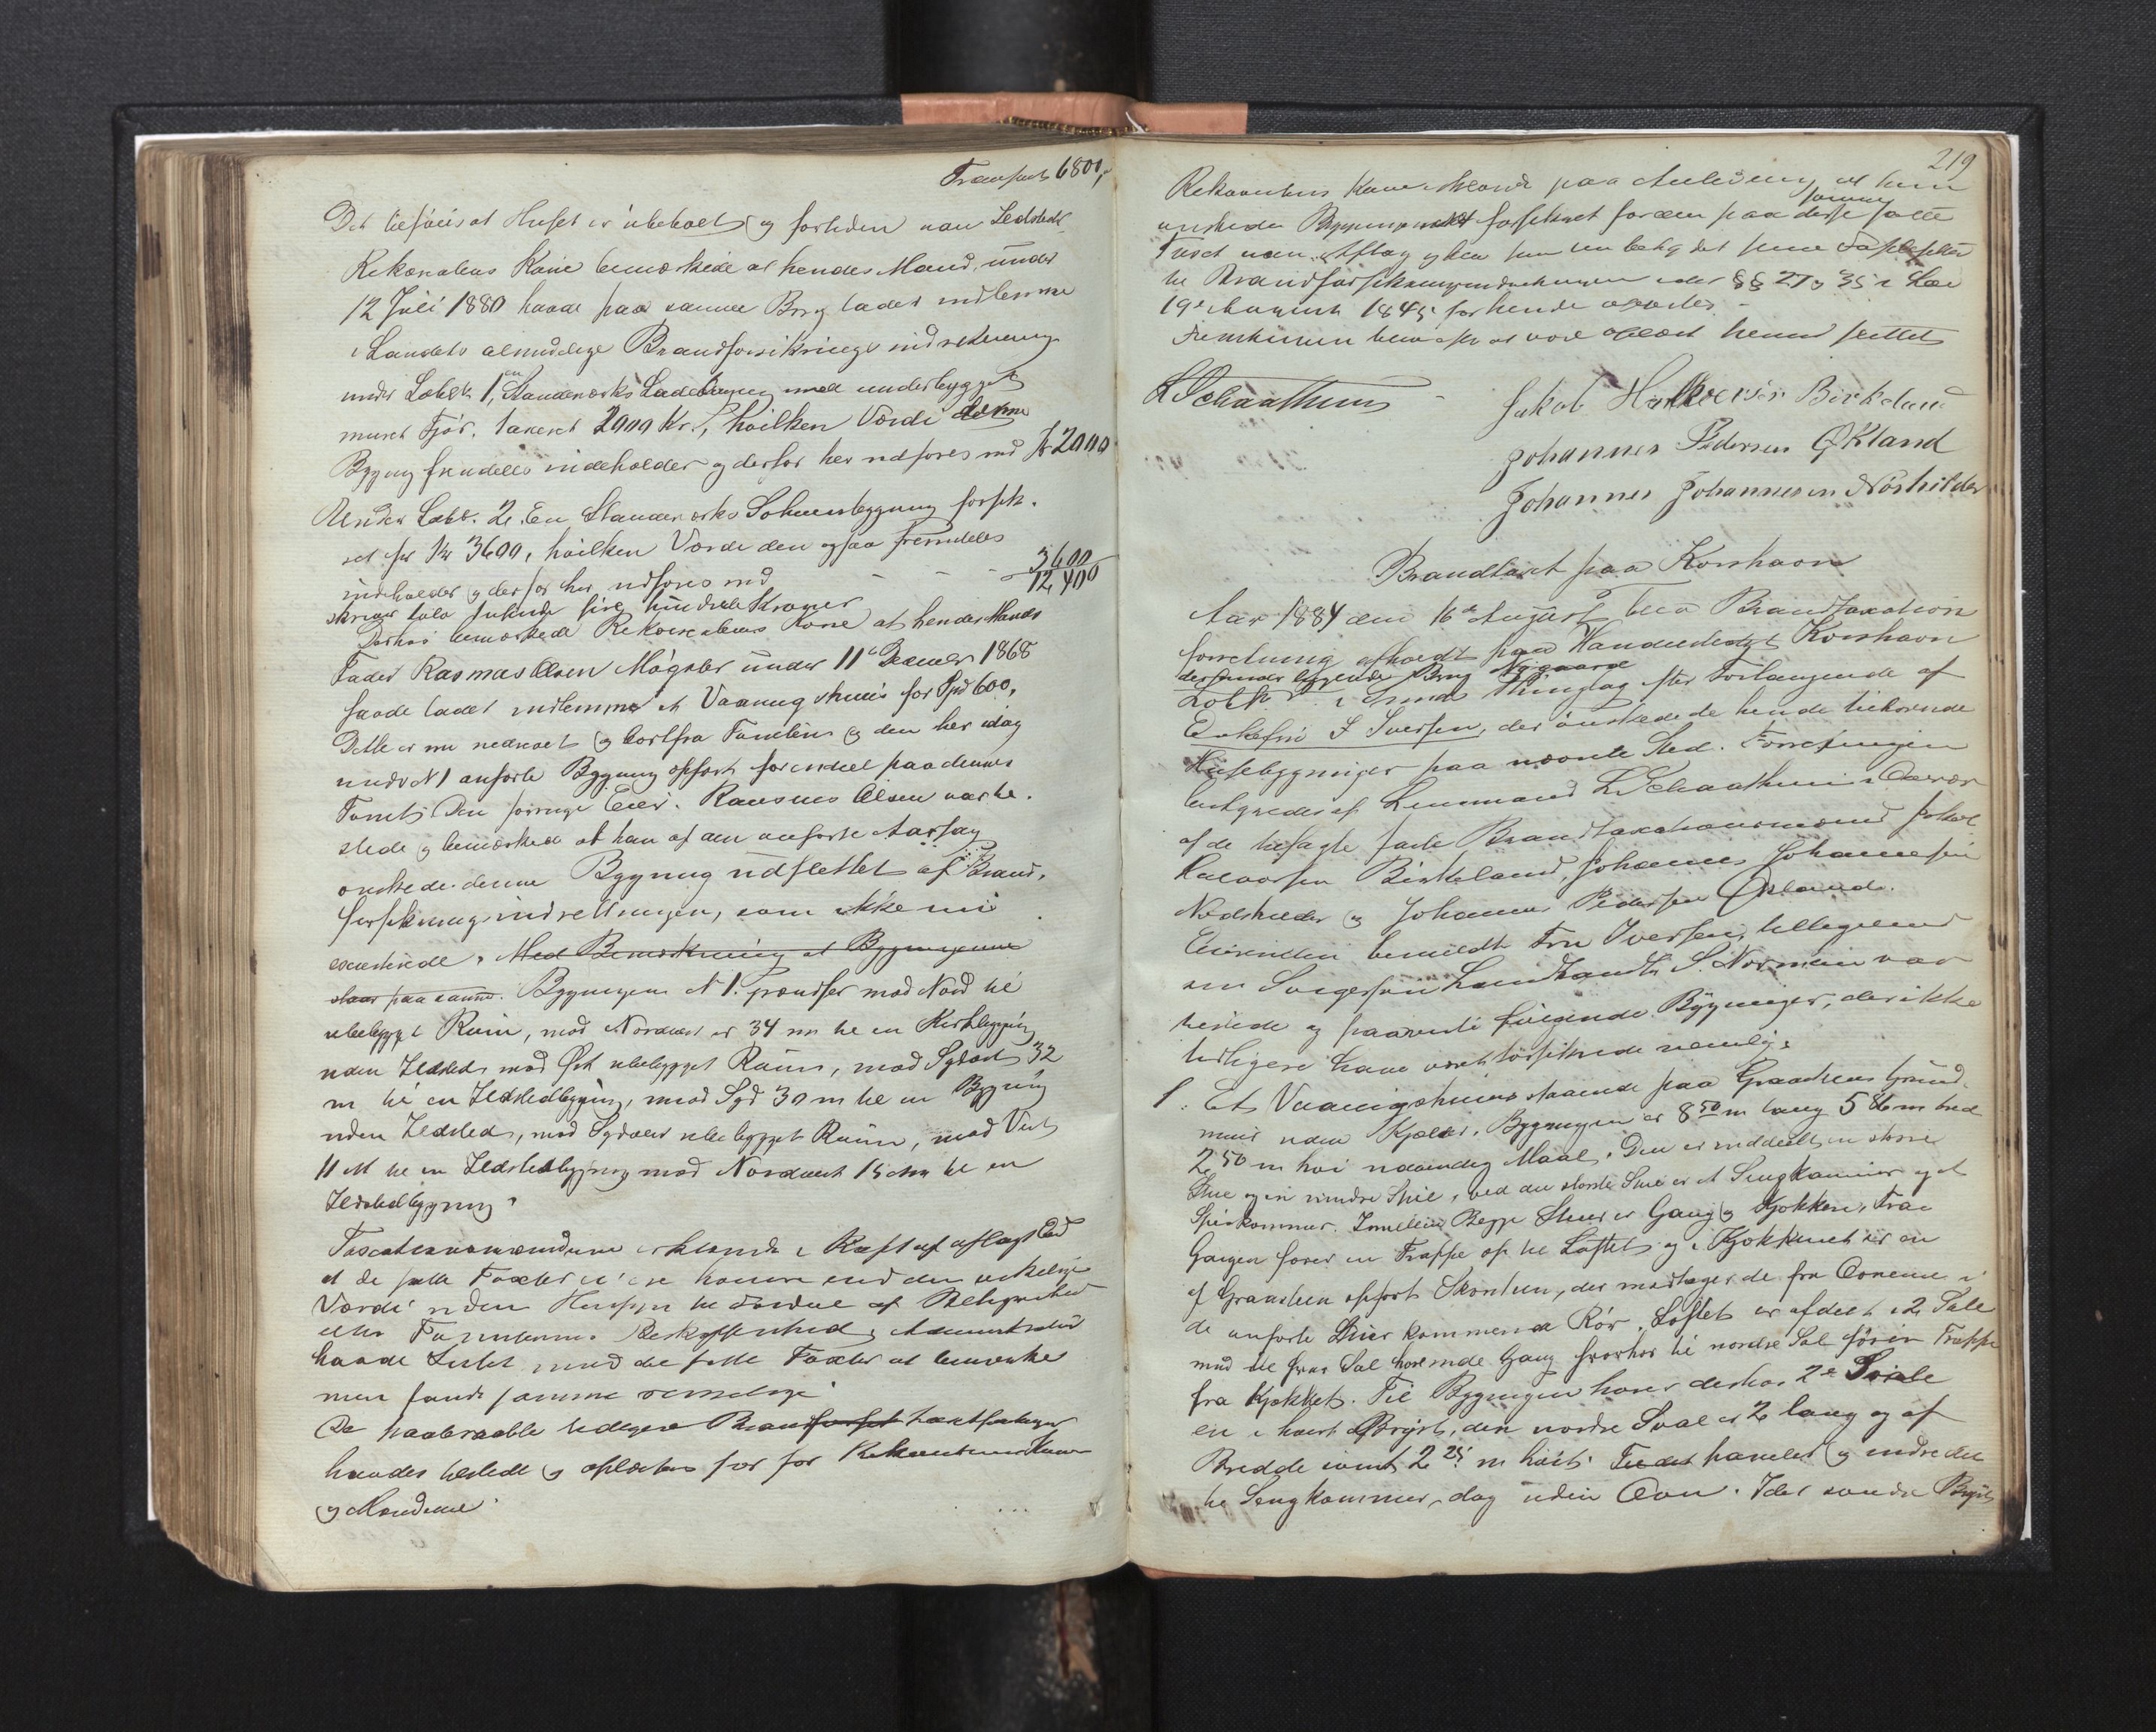 Transport 6800,
Det tilføies at Huset er ubeboet og forresten uden Ildsted
Rekvirentens Kone bemærkede at hendes Mand under
12 Juli 1880 havde paa samme Brug ladet indlemme
i Landets almindelige Brandforsikrings indretning
under Løbe N 1, en Standværks Ladebygning med underbygget
muret Fjøs, taxeret 2000 Kr., hvilken Værdi denne
Bygning fremdeles indeholder og derfor her udføres med Kr 2000
Under Løbe. 2. En Standværks Søhuusbygning forsik-
ret for Kr 3600, hvilken Værdi den ogsaa fremdeles
indeholder og derfor her udføres med - - - 3600
12,400
skriver tolv tusinde fire hundrede Kroner
Derhos bemærkede Rekvirentens Kone at hendes Mands
Fader Rasmus Olsen Møgster under 11te December 1868
havde ladet indlemme et Vaaningshuus for Spd 600,
Dette er nu nedrevet og bortfra Tomten og den her idag
under N 1 anførte Bygning opført forendeel paa denne
Tomt. Den forrige Eier Rasmus Olsen var til-
stede og bemærkede at han af den anførte Aarsag
ønskede denne Bygning udslettet af Brand-
forsikringsindretningen, som ikke mere
existerende. Med Bemærkning at Bygningerne
staar paa samme. Bygningen N 1. grændser mod Nord til
ubebygget Rum, mod Nordost er 34 m til en Kirkebygning
uden Ildsted, mod Øst ubebygget Rum, mod Sydost 32
m til en Ildstedbygning, mod Syd 30 m til en Bygning
uden Ildsted, mod Sydvest ubebygget Rum, mod Vest
11 M til en Ildstedbygning mod Nordvest 15 m til en
Ildstedbygning.
Taxationsmændene erklærede i Kraft af aflagt Ed
at de satte Taxter ei ere høiere end den virkelige
Værdi uden Hensyn til Fordeel af Beliggenhed
eller Tomternes Beskaffenhed. Administrator
havde Intet mod de satte Taxter at bemærke
men fandt samme rimelige
De paaberaabte tidligere Brandforsik taxtforretninger
havdes tilstede og oplæstes for for Rekvirentens Kone
og Mændene
219
Rekvirentens Kone erklærede paa Anledning at hun
ønskede Bygningerne forsikret for den paa disse satte
samme
Taxt uden Afslag og blev hun betyd det sine
til Brandforsikringsindretningen efter §§ 27 og 35 i Lov
19de August 1845 for hende oplæstes -
Forretningen blev efter at være oplæst hermed sluttet
L Schaathun -
Jakob Halvorsen Birkeland
Johannes Pedersen Økland
Johannes Johannesen Nøshilder
Brandtaxt paa Korshavn
Aar 1884 den 16de August blev Brandtaxations
forretning afholdt paa Handelsstedet Korshavn
derunder liggende Brug Nygaard
i Thinglag efter Forlangende af
Enkefru J Iversen, der ønskede de hende tilhørende
Huusebygninger paa nævnte Sted. Forretningen
bestyredes af Lensmand L Schaathun i Overvær
af de tilsagte faste Brandtaxationsmænd Jakob
Halvorsen Birkeland, Johannes Johannesen
Nødshilder og Johannes Pedersen Økland.
Eierinden bemeldte Fru Iversen, tilligemed
sin Svigersøn Landhandler S. Normann var
tilstede og paaviste følgende Bygninger, der ikke
tidligere have været forsikrede nemlig:
1. Et Vaaningshuus staaende paa Graasteens Grund-
muur uden Kjelder. Bygningen er 8 50 m lang 5 m bred
2,50 m høi udvendig Maal. Den er inddeelt i en større
Stue og en mindre Stue, ved den største Stue er et Sengkammer og et
Spiskammer. Imellem Begge Stuer er Gang og Kjøkken. Fra
Gangen fører en Trappe op til Loftet og i Kjøkkenet er en
af Graasteen opført Skorsteen, der modtager de fra Ovnene i
de anførte Stuer kommende Rør. Loftet er afdelt i 2 Sale
med til hver Sal hørende Gang hvorhos til nordre Sal fører Trappe
fra Kjøkket. Til Bygningen hører derhos 2de Svale
en i hvert Bryst, den nordre Sval er 2 lang og af
Bredde samt 2 25 m høit. Tildeels panelet og indredet
til Sengkammer, dog uden Ovn. I det søndre Bryst